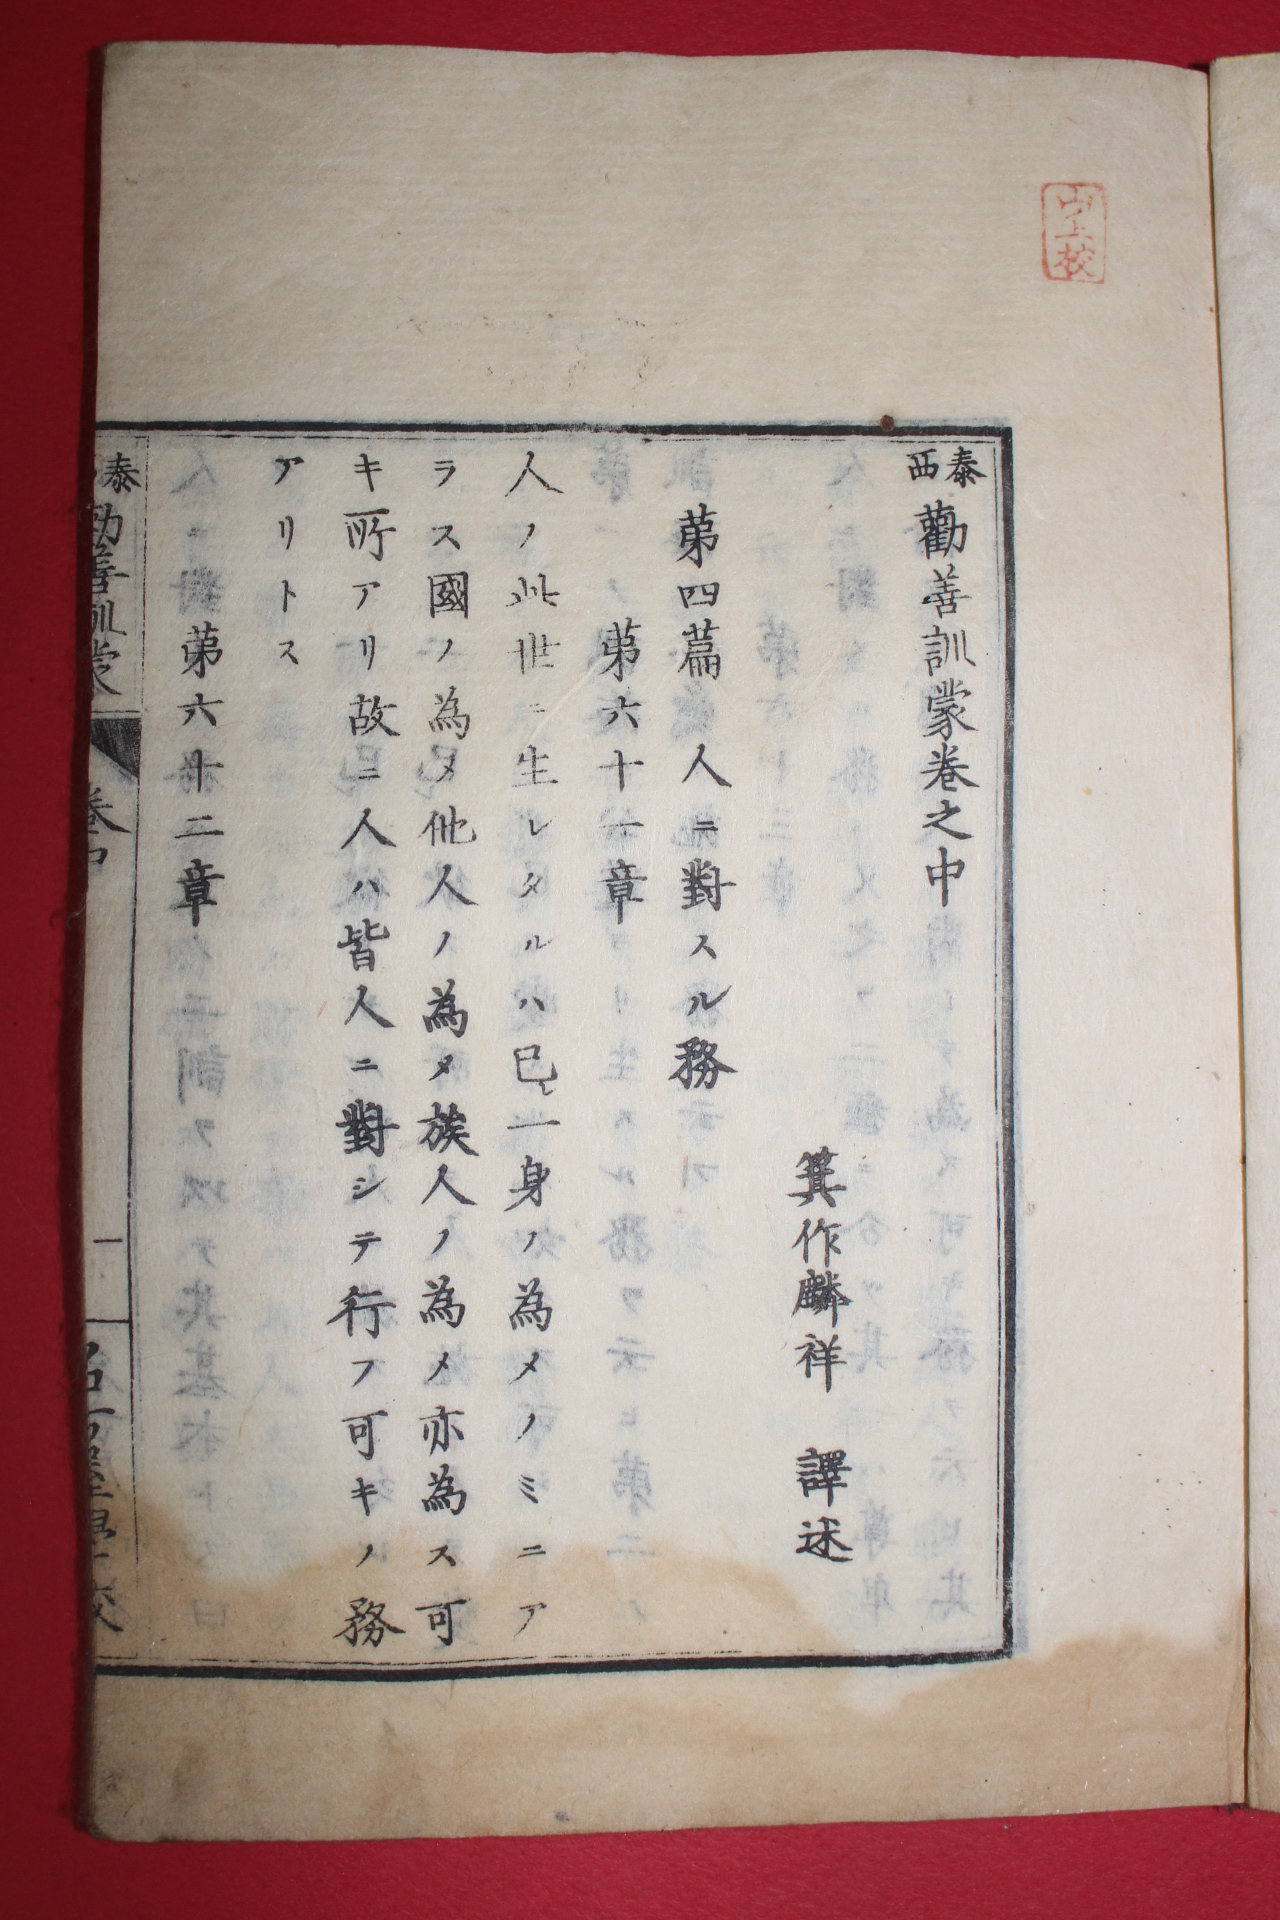 泰西勸善訓蒙卷之中
箕作麟祥 譯述
第四篇 人ニ對スル務
第六十一章
人ノ此世ニ生レタルハ已一身ノ為メノミニア
ラス國ノ為メ他人ノ為メ族人ノ為メ亦為ス可
キ所アリ故ニ人ハ皆人ニ對シテ行フ可キノ務
アリトス
第六十二章
泰
勸善訓蒙
卷中
一
名古屋學校